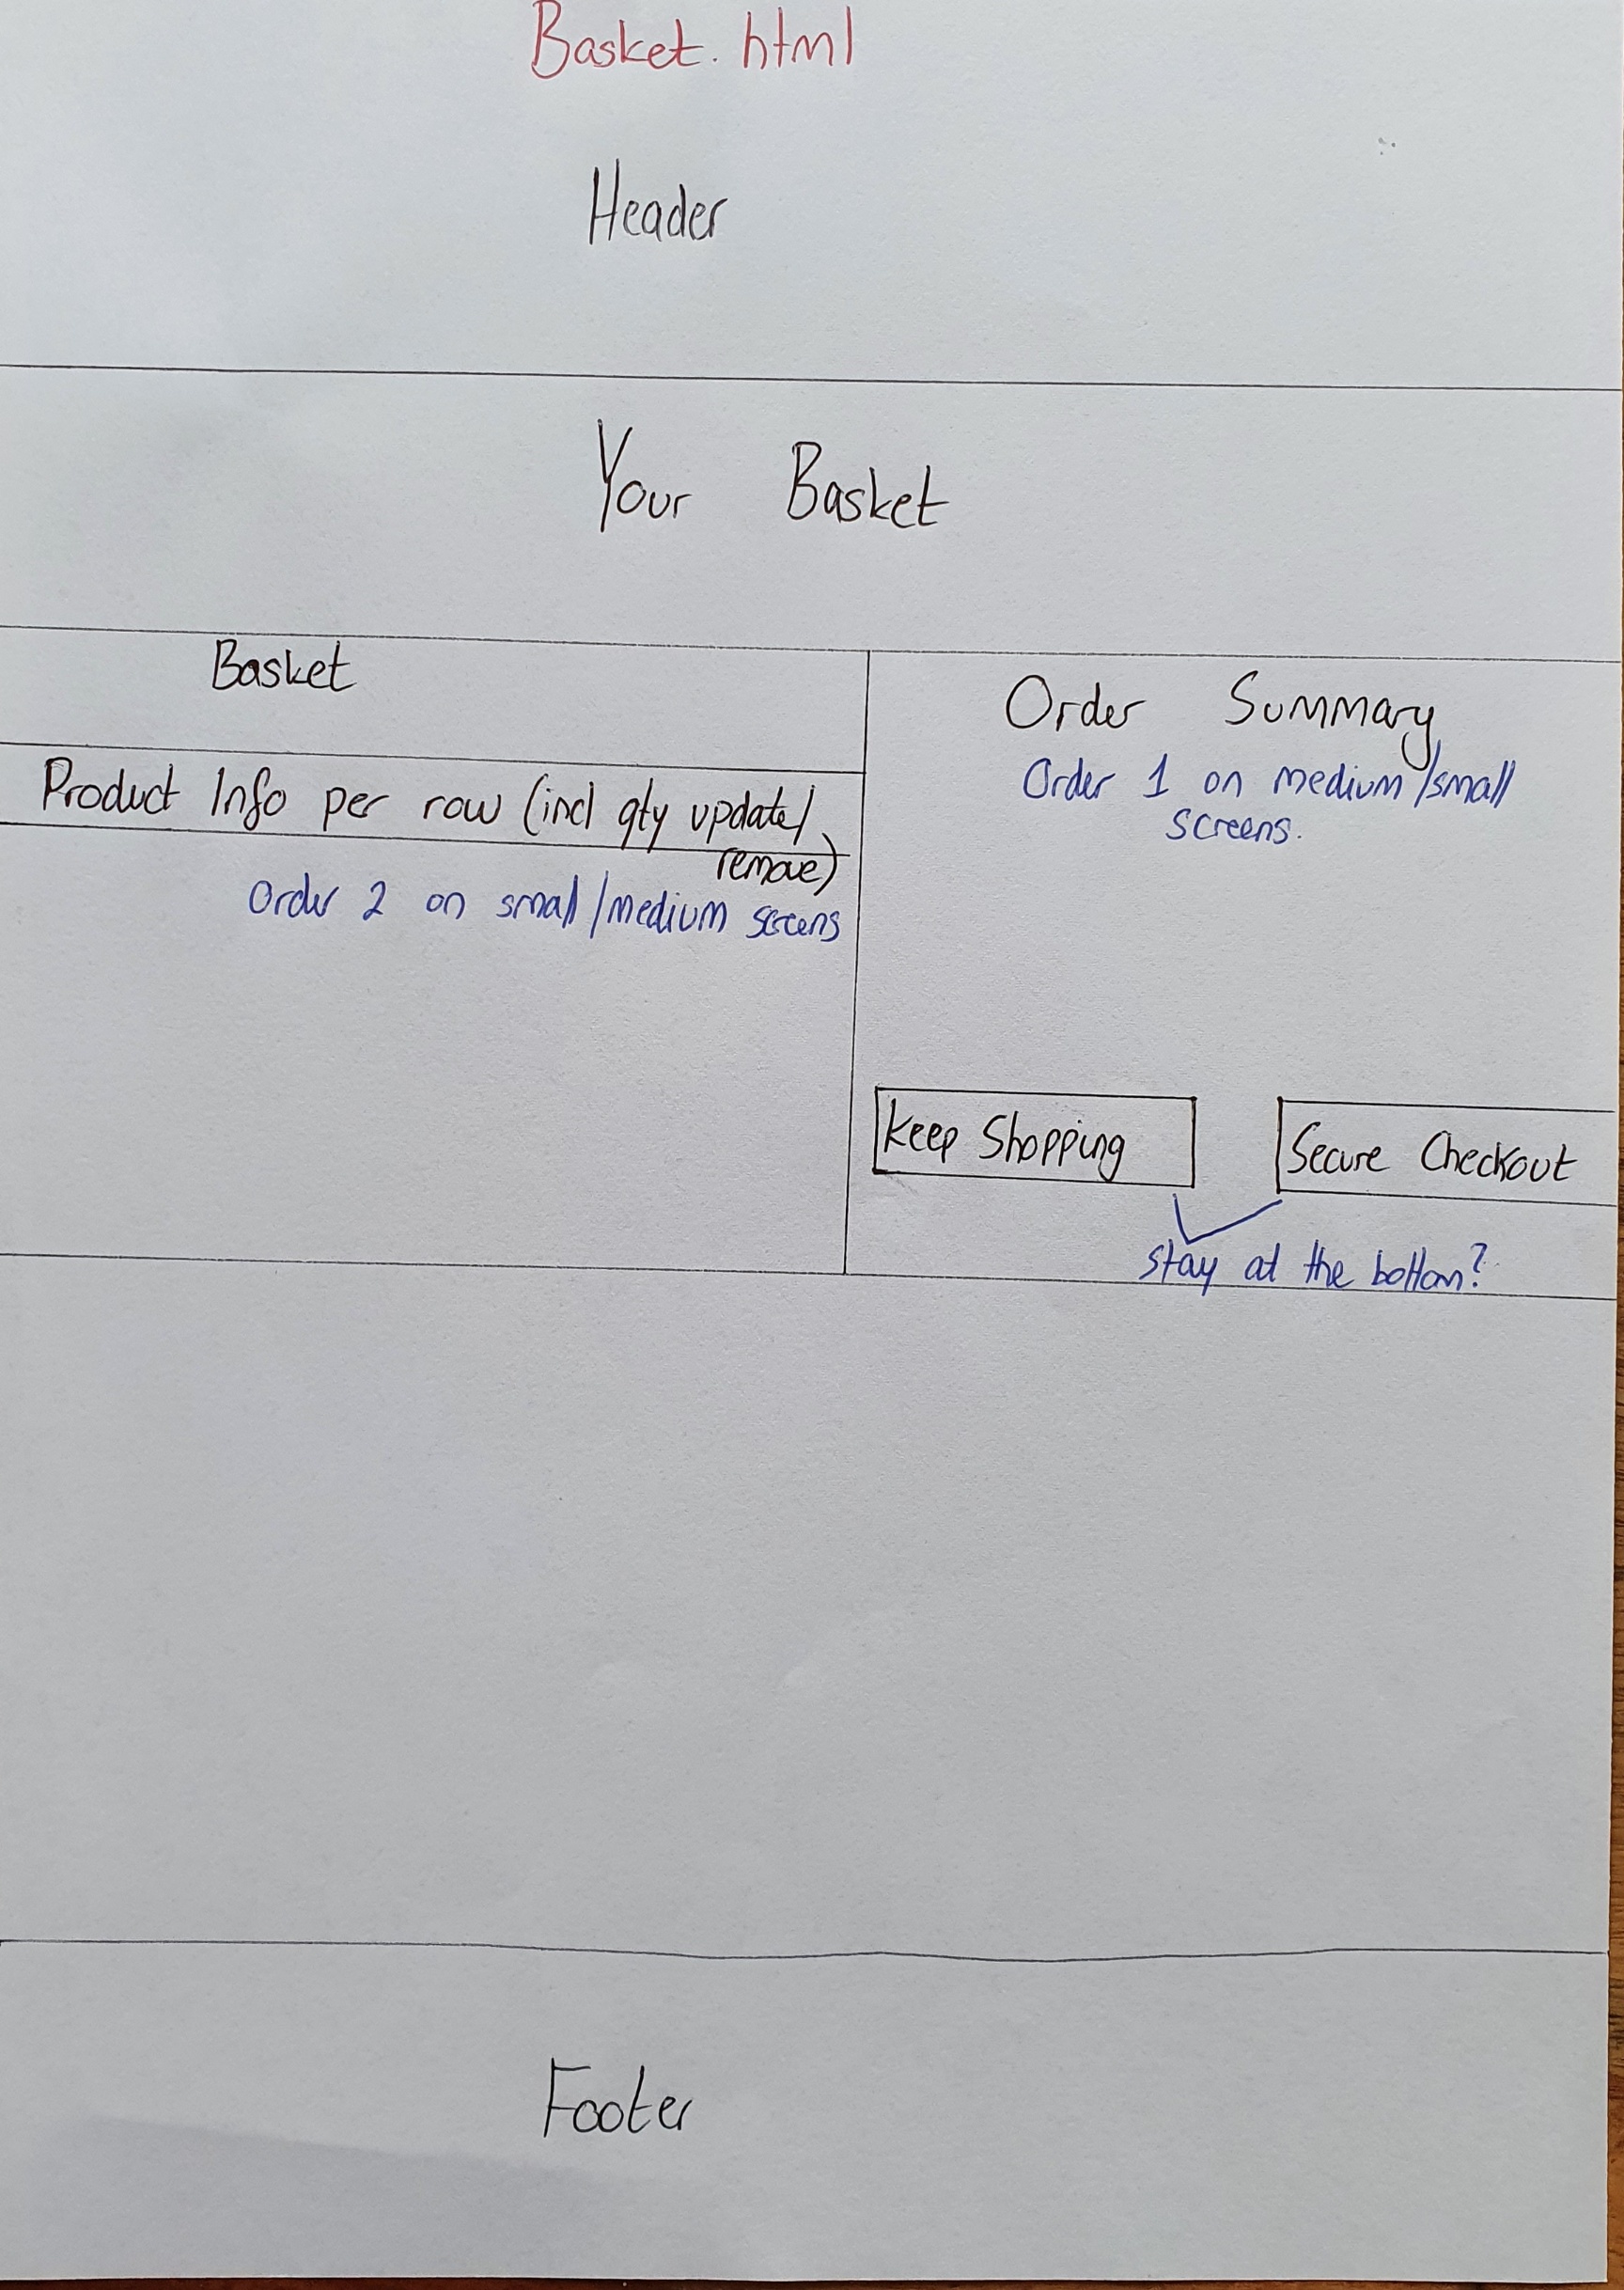 Basket.html
Header
Your Basket
Basket
Product Info per row (incl qty update/
remove)
Order 2 on small/medium screens
Order Summary
Order 1 on medium/small
screens.
Keep Shopping
Secure Checkout
stay at the bottom?
Footer